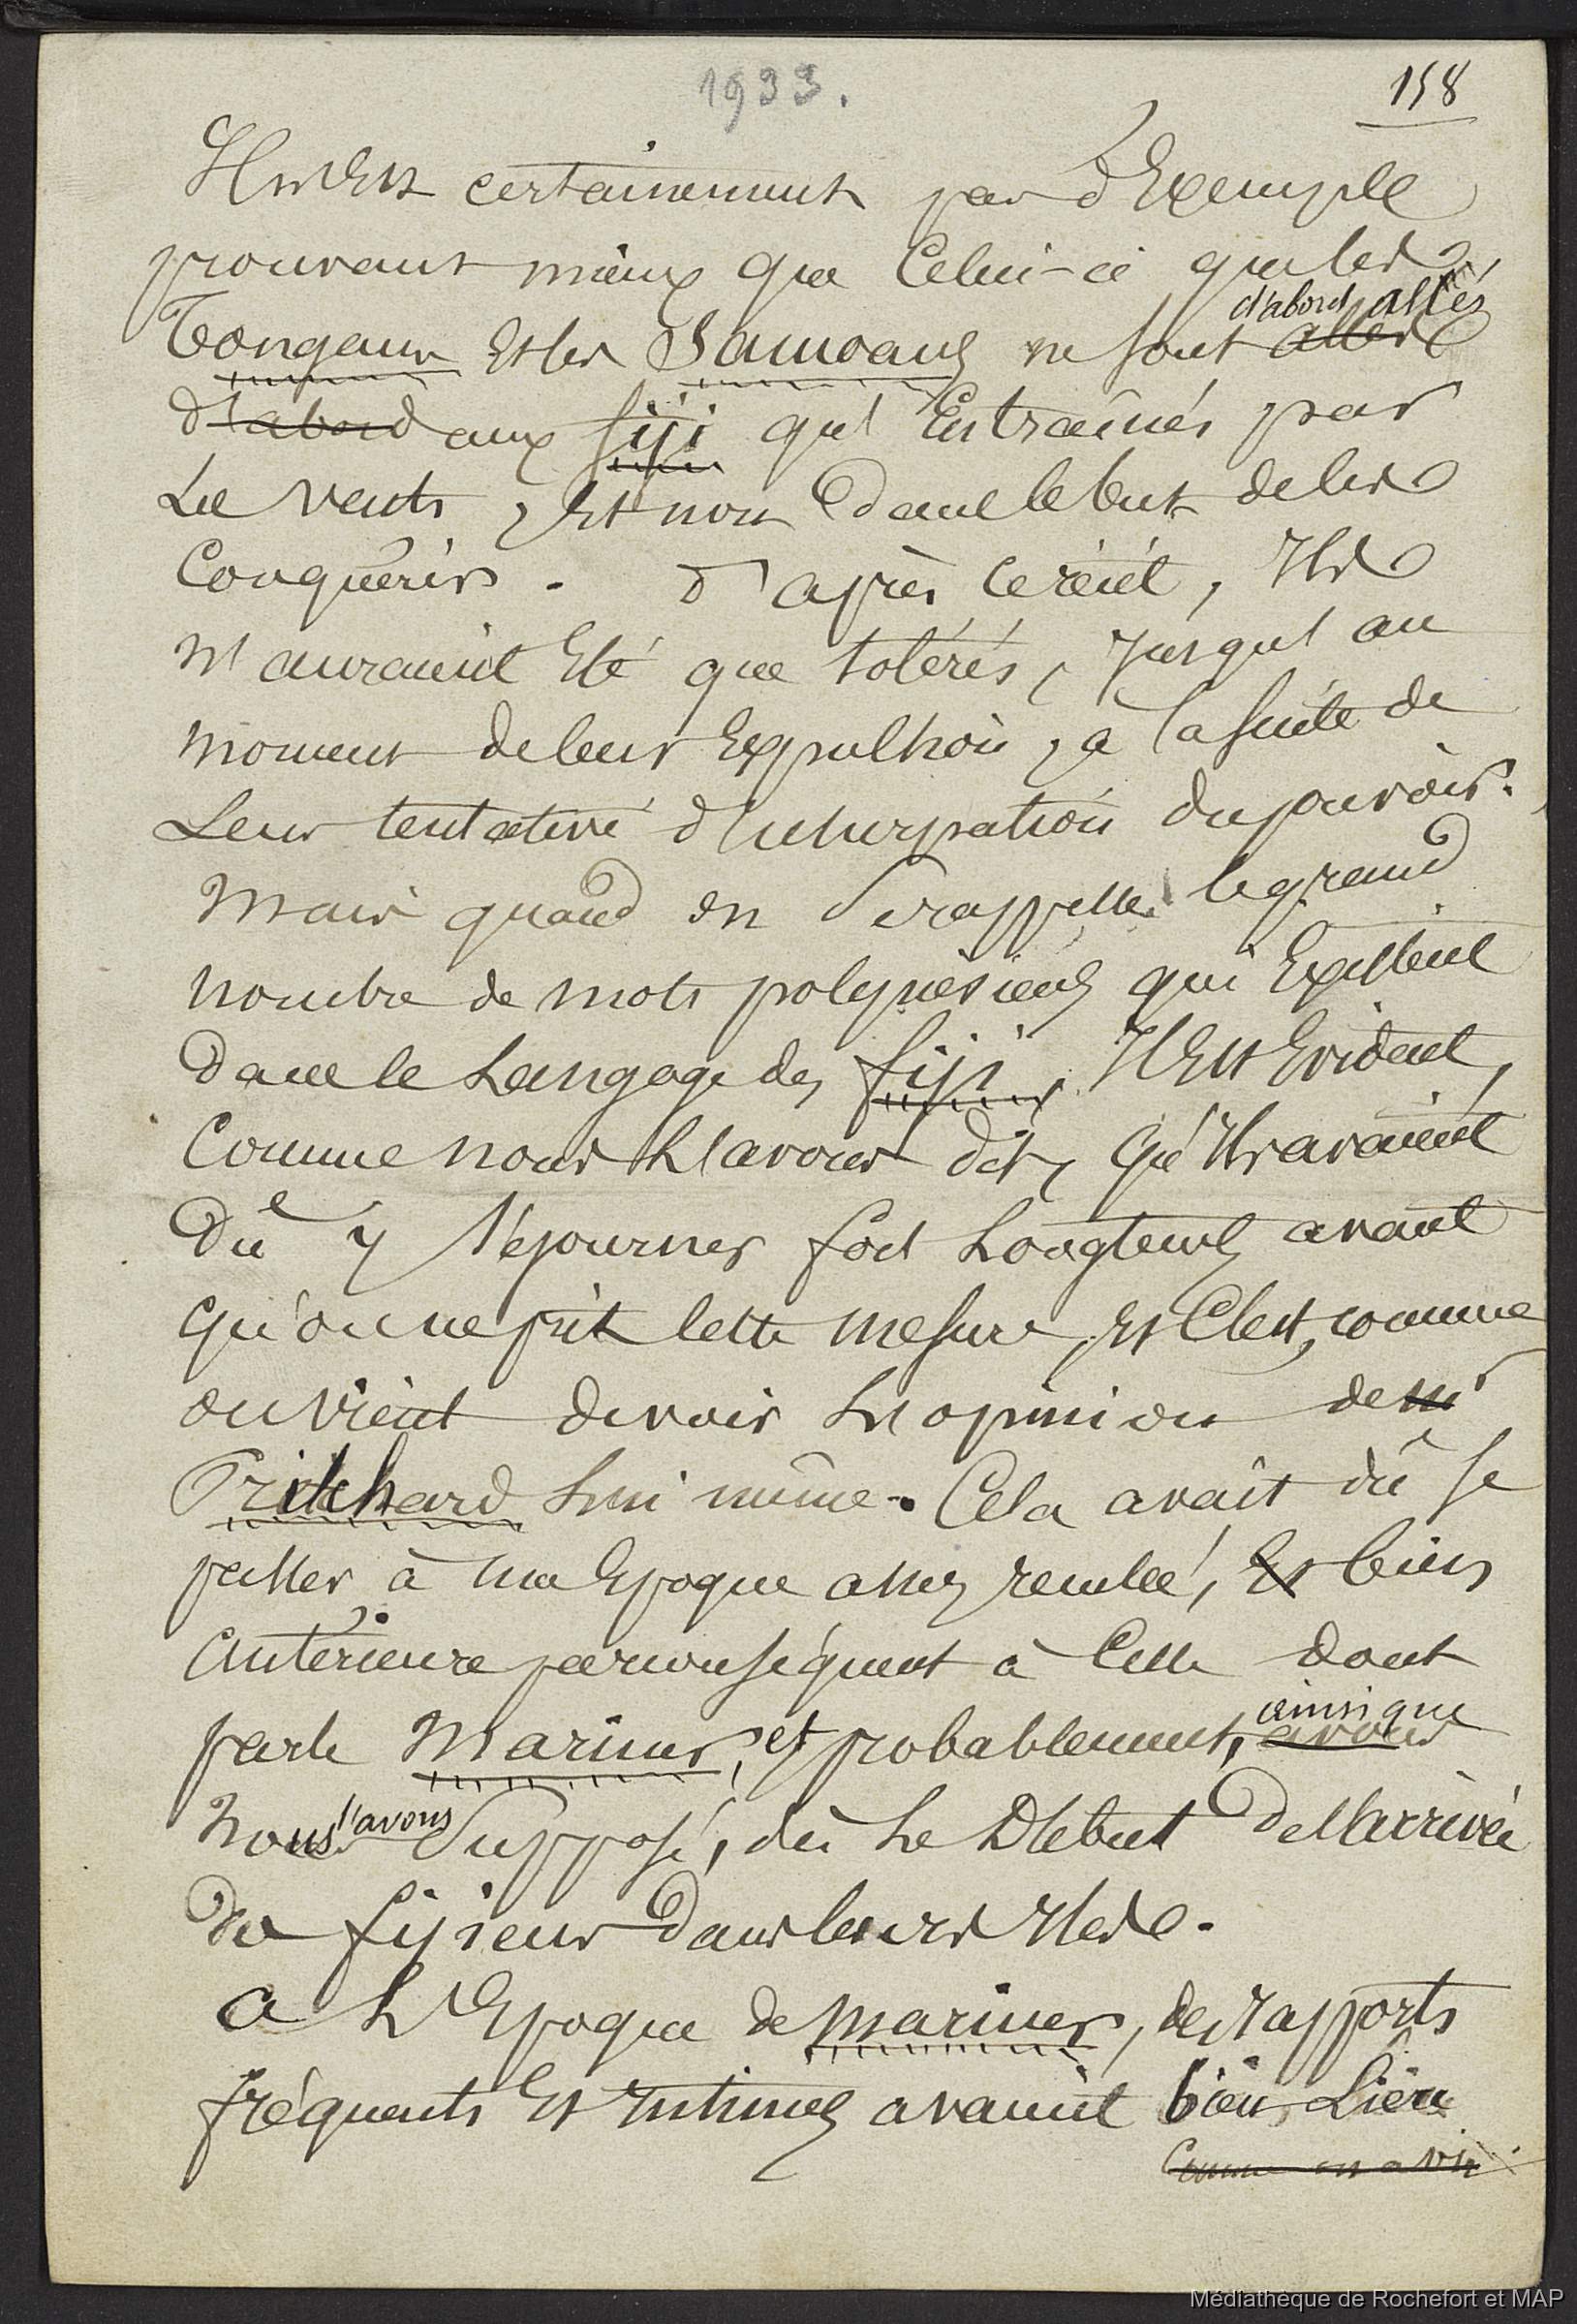 1933.
158
Il n'est certainement pas d'Exemple
prouvant mieux que Celui-ci que les
Tongans Et les Samoans ne sont d'abord allés allés
d'abord aux fiji qu'Entraînés par
Les vents, Et non dans le but de les
Conquérir. D'après ce récit, Ils
N'auraient Eté que tolérés, Jusqu'au
moment de leur Expulsion, à la suite de
Leur tentative d'usurpation du pouvoir.
Mais quand on se rappelle le grand
nombre de mots polynésiens qui Existent
dans le Langage des fiji, Il Est Evident,
Comme nous L'avons dit, qu'Ils avaient
Dû y séjourner fort Longtemps avant
qu'on ne prit cette mesure, Et C'est, comme
on vient de voir L'opinion de Mr
Pritchard Lui même. Cela avait dû se
passer à une Epoque assez reculée, Et bien
antérieure par conséquent à Celle dont
parle Mariner, et probablement, ainsi que avons
Nous l'avons Supposé, dès Le Début de l'arrivée
des fijiens dans leurs Iles.
A L'Epoque de Mariner, des rapports
fréquents Et Intimes avaient bien Lieu
Comme on a vu
Médiathèque de Rochefort et MAP